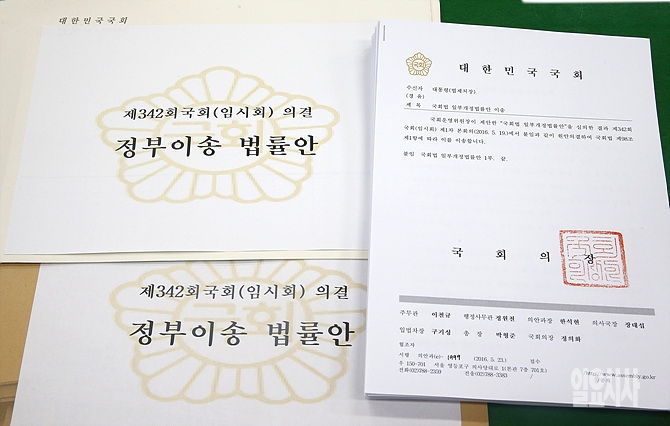 대한민국국회
제342회국회(임시회) 의결
정부이송 법률안
제342회국회(임시회) 의결
정부이송 법률안
국회
대한민국국회
수신자 대통령(법제처장)
(경 유)
제 목 국회법 일부개정법률안 이송
국회운영위원장이 제안한 "국회법 일부개정법률안"을 심의한 결과 제342회
국회(임시회) 제1차 본회의(2016. 5. 19.)에서 붙임과 같이 원안의결하여 국회법 제98조
제1항에 따라 이를 이송합니다.
붙임 국회법 일부개정법률안 1부. 끝.
국 회 의 장
주무관 이천규 행정사무관 정원천 의안과장 한석현 의사국장 장대섭
입법차장 구기성 총 장 박형준 국회의장 정의화
협조자
시행 의안과(e)- (2016. 5. 23.) 접수
우 150-701 서울 영등포구 의사당대로 1(본관 7층 701호)
전화(02)788-2359 전송(02)788-3383 /
http://www.assembly.go.kr
일요시사